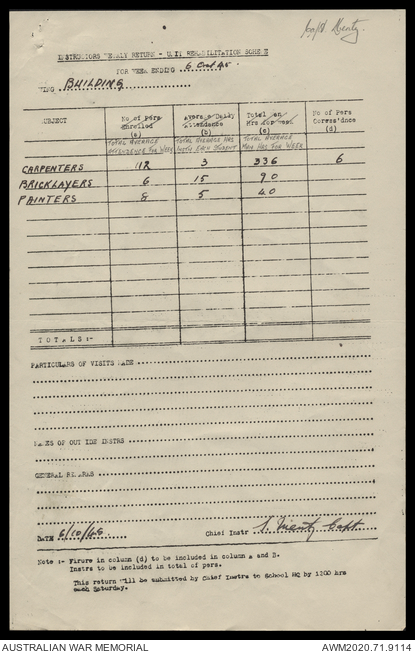 Capt Mentz.
INSTRUCTORS WEEKLY RETURN - UNIT REHABILITATION SCHEME
FOR WEEK ENDING 6 Oct 45
WING BUILDING
SUBJECT No of Pers Enrolled (a) Average Daily Attendance (b) Total Hrs for (c) No of Pers Corres'dnce (d)
TOTAL AVERAGE ATTENDENCE FOR WEEK TOTAL AVERAGE HRS WITH EACH STUDENT TOTAL AVERAGE MAN HRS FOR WEEK
CARPENTERS 112 3 336 6
BRICKLAYERS 6 15 90
PAINTERS 8 5 40
TOTALS:-
PARTICULARS OF VISITS MADE
NAMES OF OUTSIDE INSTRS
GENERAL REMARKS
DATE 6/10/45 Chief Instr Mentz Capt
Note :- Figure in column (d) to be included in column A and B.
Instrs to be included in total of pers.
This return will be submitted by Chief Instrs to School HQ by 1200 hrs
each Saturday.
AUSTRALIAN WAR MEMORIAL AWM2020.71.9114